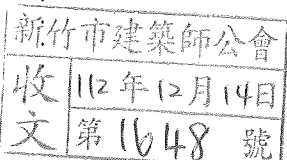 新竹市建築師公會
收文
112年12月14日
第1648號